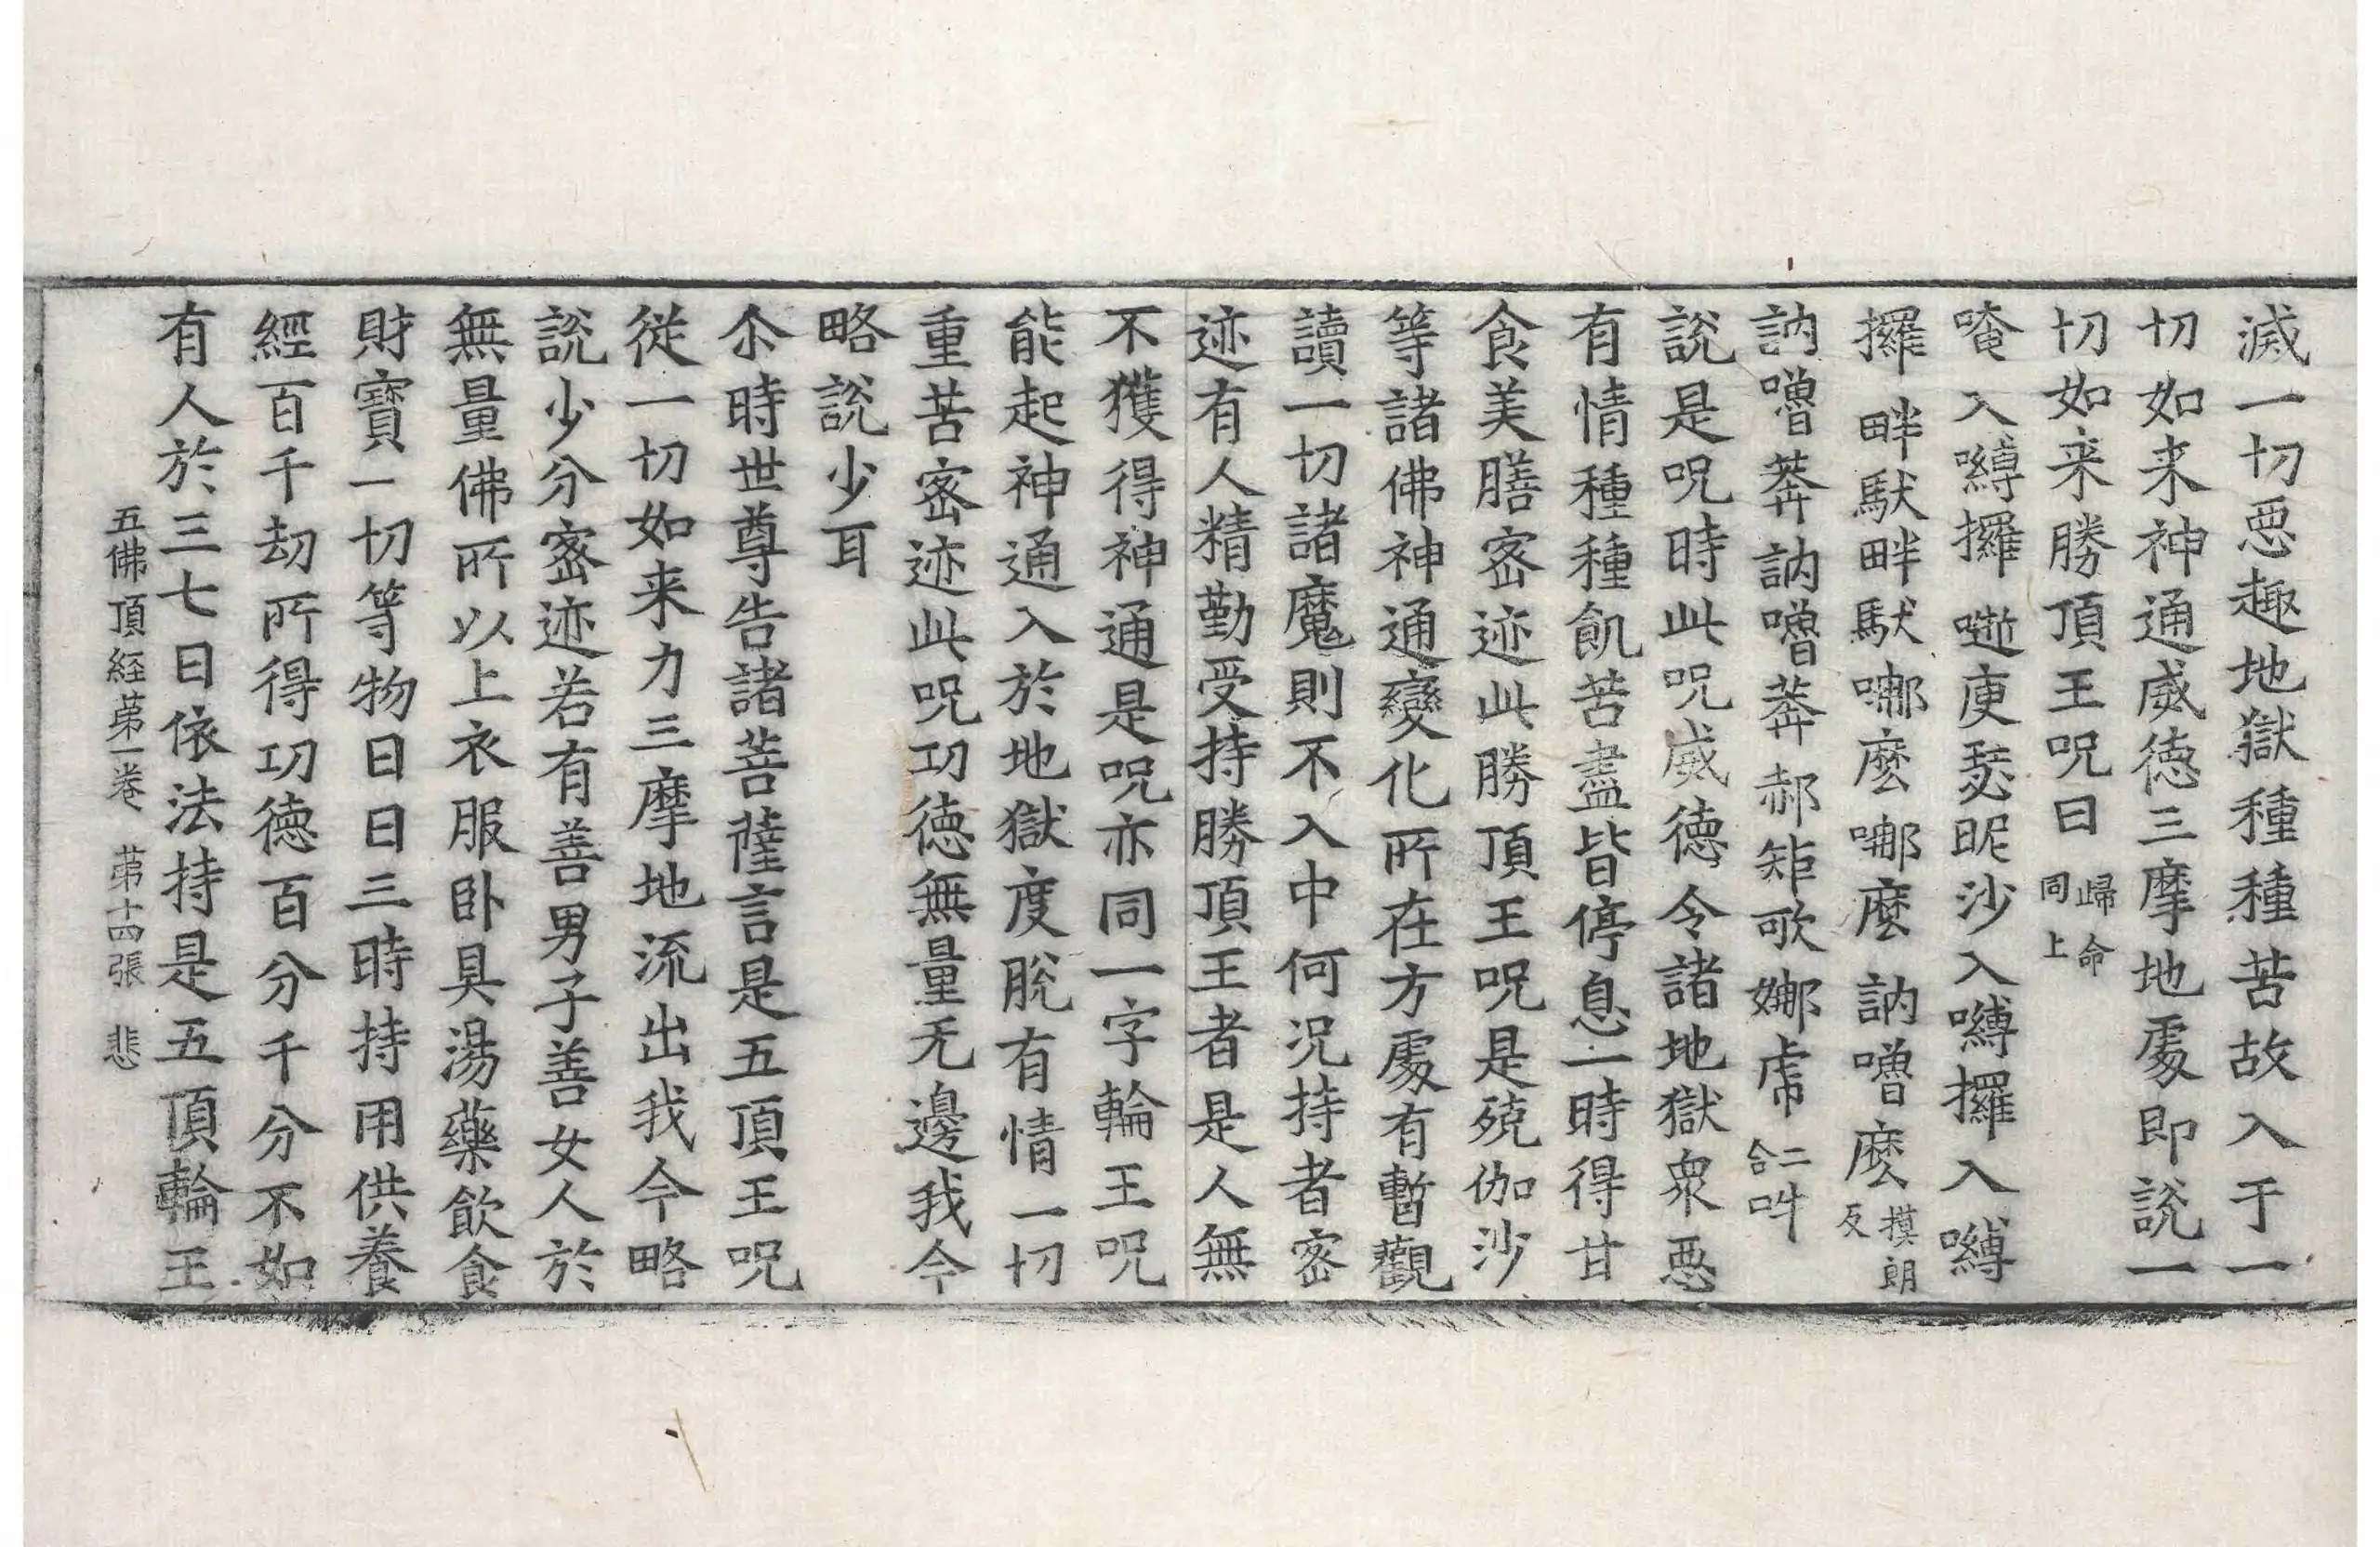 滅一切惡趣地獄種種苦故入于一
切如来神通威徳三摩地處即說一
切如来勝頂王呪曰歸命同上
唵入嚩攞𠽫庾瑟昵沙入嚩攞入嚩
攞畔馱畔馱𠷾麽𠷾麽訥嚕麽摸朗反
訥嚕莾訥嚕莾郝矩歌娜虎二合吽
說是呪時此呪威徳令諸地獄衆惡
有情種種飢苦盡皆停息一時得甘
食美膳宻迹此勝頂王呪是殑伽沙
等諸佛神通變化所在方處有暫觀
讀一切諸魔則不入中何況持者宻
迹有人精勤受持勝頂王者是人無
不獲得神通是呪亦同一字輪王呪
能起神通入於地獄度脫有情一切
重苦宻迹此呪功徳無量无邊我今
略說少耳
尒時世尊告諸菩薩言是五頂王呪
從一切如来力三摩地流出我今略
說少分宻迹若有善男子善女人於
無量佛所以上衣服卧具湯藥飲食
財寶一切等物日日三時持用供養
經百千劫所得功徳百分千分不如
有人於三七日依法持是五頂輪王
五佛頂経苐一卷 苐十四張 悲